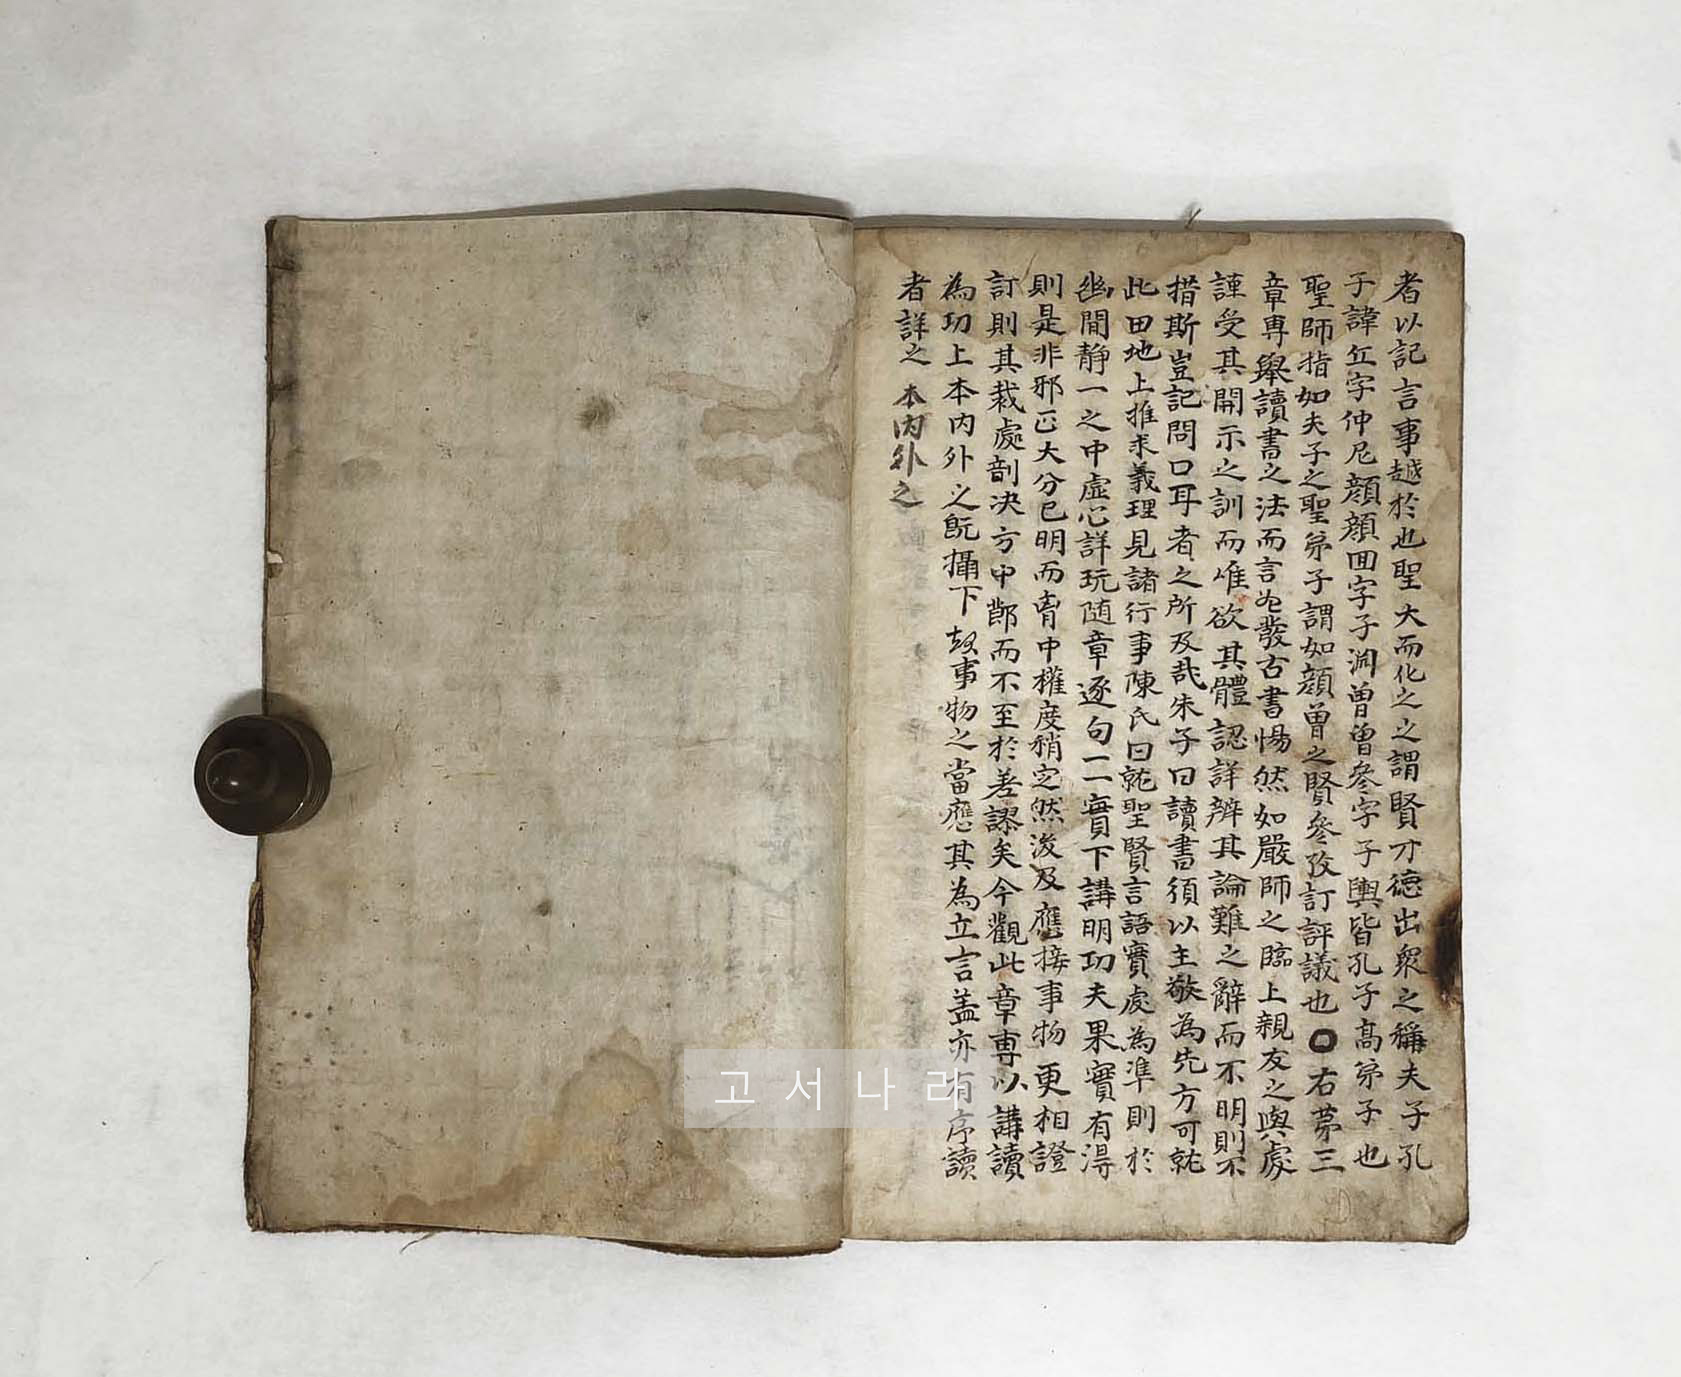 者以記言事越於也聖大而化之之謂賢才德出衆之稱夫子孔
子諱丘字仲尼顔顔回字子淵曽曽參字子輿皆孔子髙弟子也
聖師指如夫子之聖弟子謂如顔曽之賢參攷訂評議也〇右苐三
章専舉讀書之法而言發古書惕然如嚴師之臨上親友之與處
謹受其開示之訓而惟欲其體認詳辨其論難之辭而不明則不
措斯豈記問口耳者之所及㢤朱子曰讀書須以主敬為先方可就
此田地上推求義理見諸行事陳氏曰就聖賢言語實處為準則於
幽閒静一之中虚心詳玩随章逐句一一實下講明功夫果實有得
則是非邪正大分已明而胷中權度稍定然後及應接事物更相證
訂則其裁處剖决方中節而不至於差謬矣今觀此章専以講讀
為功上本内外之既攝下事物之當應其為立言盖亦有序讀
者詳之 本内外之
고서나라